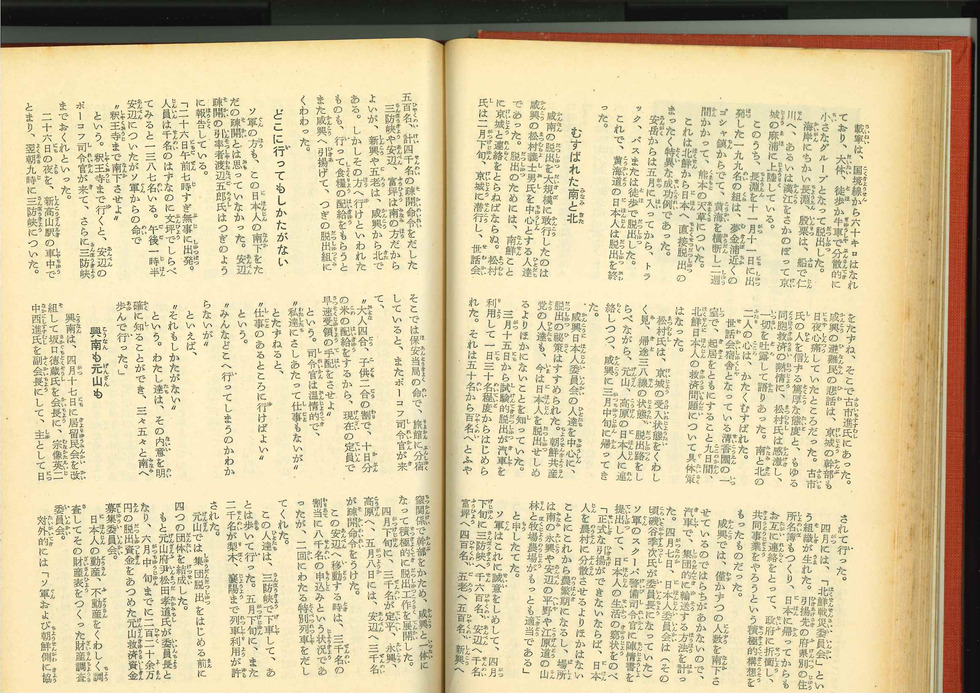 載寧は、国境線から六十キロはなれ
ており、大体、徒歩か牛車で分散的に
小さなグループとなって脱出した。
海岸にちかい長淵、殷栗は、船で仁
川へ、あるいは漢江をさかのぼって京
城の麻浦に上陸している。
このうち、長淵を十月十一日に出
発した一九九名の組は、夢金浦近くの
ゴシャ鎮からで、黄海を横断し二週
間かかって、熊本の天草についた。
これは北鮮から日本へ、直接脱出の
まったく特異な成功例であった。
安岳からは五月に入ってから、トラ
ック、バスまたは徒歩で脱出した。
これで、黄海道の日本人は脱出を終
った。
むすばれた南と北
咸南の脱出を大規模に敢行したのは
咸興の松村義士男氏を中心とする人達
であった。脱出のためには、南鮮こと
に京城と連絡をとらねばならぬ。松村
氏は二月下旬、京城に潜行し、世話会
をたずね、そこで古市進氏にあった。
咸興の避難民の悲話は、京城の幹部も
日夜心痛していたところだった。古市
氏の人を信ずる寛厚な態度と、もゆる
同胞救済の熱情に、松村氏は感激し、
一切を吐露して語りあった。南と北の
二人の心は、かたくむすばれた。
世話会宿舎となっている清香園の一
室で、起居をともにすること九日間、
北鮮日本人の救済問題について具体策
はなった。
松村氏は、京城の受入状態をくわし
く見、帰途三八線の状態、脱出路をし
らべながら、元山、高原の日本人に連
絡しつつ、咸興に三月中旬に帰ってき
た。
咸興日本人委員会の人達を中心に、
脱出の秘策はすすめられた。朝鮮共産
党の人達も、今は日本人を脱出せしめ
るよりほかにないことを知っていた。
三月十五日から試験的脱出が汽車を
利用して一日三十名程度からはじめら
れた。それは五十名から百名へとふや
されて行った。
四月には、「北鮮戦災委員会」とい
う組織が生れた。引揚先の府県別の住
所名簿もつくり、日本に帰ってからも
お互に連絡をとって、政府に折衝し、
共同事業をやろうという積極的構想を
もったものだった。
咸興では、僅かずつの人数を南下さ
せているのではらちがあかないので、
汽車で、集団的に輸送する方法を計っ
た。四月六日、日本人委員会は（その
頃磯谷季次氏が委員長になっていた）
ソ軍のスクーバ警備司令官に陳情書を
提出して、日本人の生活の窮状をのべ
「正式な引揚ができないならば、日本
人を農村に分散させるよりほかはない
ことにこれから農繁期になるし、場所
は南の永興と安辺の平野や江原道の山
林と牧場農場がもっとも適当である」
と申したてた。
ソ軍はこれに誠意をしめして、四月
下旬に三防峡へ六百名、安辺へ五百名
富坪へ四百名、五老へ五百名、新興へ
五百名、計四千名の疎開命令をだした
三防峡や安辺、富坪は南の方だから
よいが、新興や五老は、咸興から北で
ある。しかしその方へ行けといわれた
ものも、行って食糧の配給をもらうと
また咸興へ引揚げて、つぎの脱出組に
くわわった。
どこに行ってもしかたがない
ソ軍の方も、この日本人の南下をた
だの疎開とは思っていなかった。安辺
疎開の引率者渡辺五郎氏はつぎのよう
に報告している。
「二十六日午前七時すぎ無事に出発。
人員は千名のはずなのに文坪でしらべ
てみると一三八七名いる。午後二時半
安辺についたがソ軍からの命で
〝釈王寺まで南下させよ〟
という。釈王寺まで行くと、安辺の
ボーコフ司令官が来て、さらに三防峡
までおくれといった。
二十六日の夜を、新高山駅の車中で
とまり、翌朝九時に三防峡についた。
そこでは保安当局の命で、旅館に分宿
していると、またボーコフ司令官が来
て、
〝大人四合、子供二合の割で、十日分
の米の配給をするから、現在の定員で
早速受領の手配をさせよ〟
という。司令官は温情的で、
〝私達にさしあたって仕事もないが〟
とたずねると、
〝仕事のあるところに行けばよい〟
という。
〝みんなどこへ行ってしまうのかわか
らないが〟
といえば、
〝それもしかたがない〟
という。わたし達は、その内意を明
確に知ることができ、三々五々と南へ
歩んで行った。」
興南も元山も
興南は、四月十七日に居留民会を改
組して坂口俊蔵氏を会長に、宗像英二
中西進氏を副会長にして、主として日
窒関係で幹部をかため、咸興と一体に
なって積極的に脱出工作を展開した。
四月下旬に、三千名が定平、永興、
高原へ、五月八日には、安辺へ三千名
が疎開命令をうけた。
この安辺へ移動する時は、三千名の
割当に八千名の申込みという状況であ
ったが、二回にわたる特別列車をだし
てくれた。
この人達は、三防峡で下車して、あ
とは歩いて行った。五月下旬に、また
二千名が梨木、襄陽まで列車利用が許
された。
元山では集団脱出をはじめる前に
四つの団体を結成した。
もと元山府尹松田孝道氏が委員長と
なり、六月中旬までに二百二十余万
円の脱出資金をあつめた元山救済資金
募集委員会。
日本人の動産、不動産をくわしく調
査してその財産表をつくった財産調査
委員会。
対外的には「ソ軍および朝鮮側に協